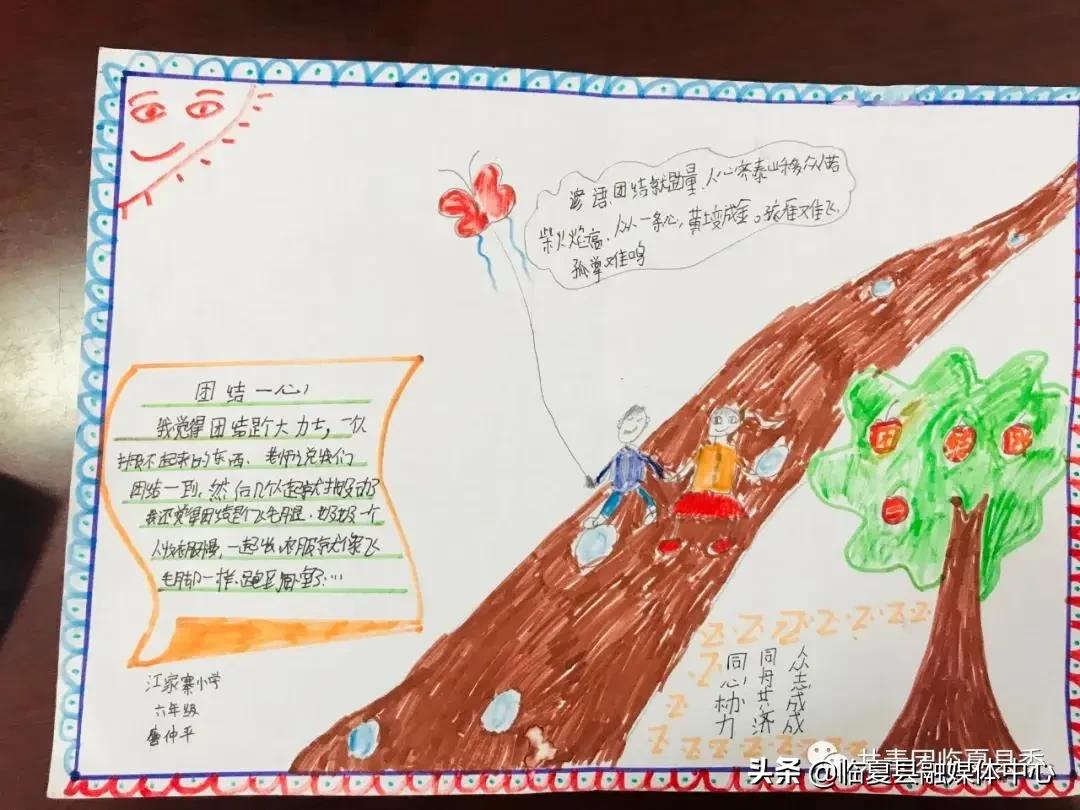 谚语：团结就是力量、人心齐泰山移众人拾
柴火焰高、众人一条心，黄土变成金。孤雁难飞，
孤掌难鸣
团结一心
我觉得团结是个大力士，一个人
搬不起来的东西、老师说我们
团结一到，然后几个人一起就搬动了
我还觉得团结是个飞毛腿，妈妈一个
人做衣服慢，一起做衣服就像飞
毛脚一样、跑
江家寨小学
六年级
鲁仲平
众志成成
同舟共济
同心协力
团
结
一
心
共青团临夏县委
头条 @临夏县融媒体中心